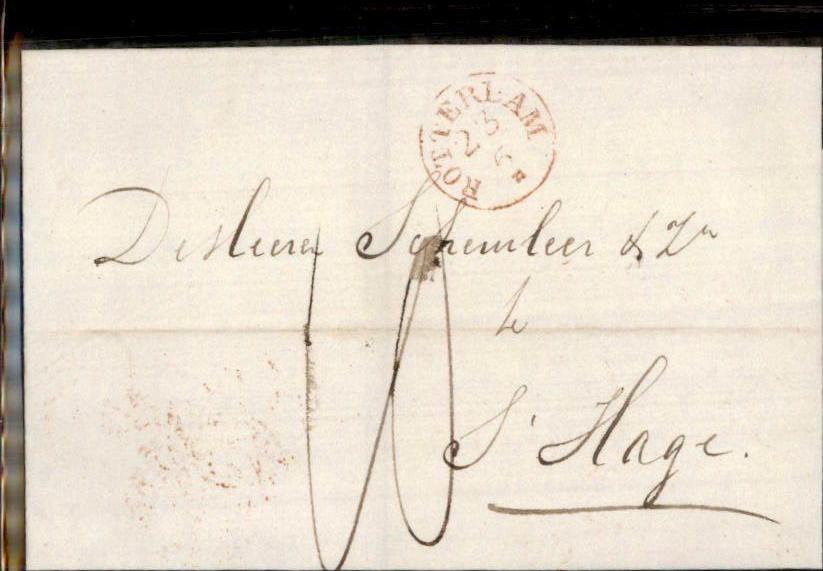 ROTTERDAM
23
6
De Heeren Scheurleer & Zn
te
S' Hage.
10